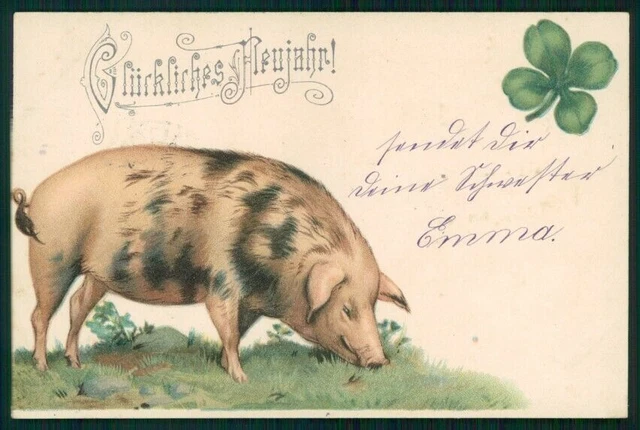 Glückliches Neujahr!
sendet Dir
Deine Schwester
Emma.